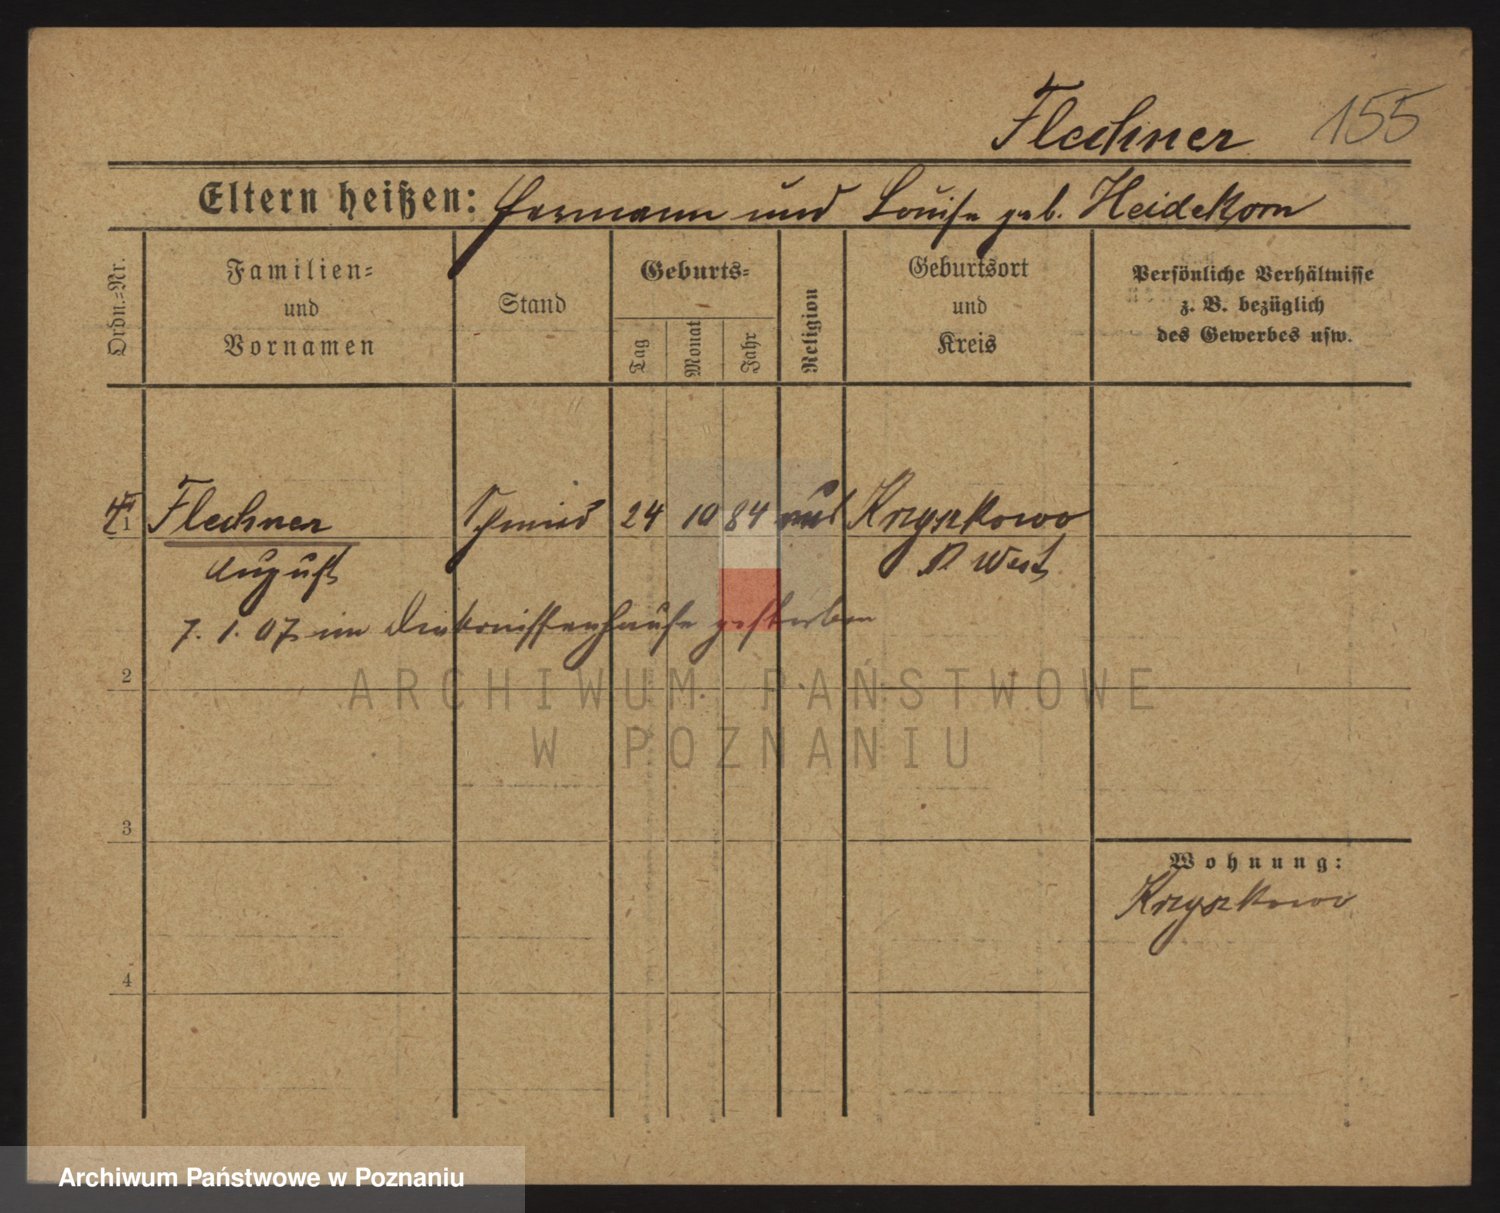 Flechner 155
Eltern heißen: Hermann und Louise geb. Heidekorn
Ordn.=Nr.
Familien=
und
Vornamen
Stand
Geburts=
Tag
Monat
Jahr
Religion
Geburtsort
und
Kreis
Persönliche Verhältnisse
z. B. bezüglich
des Gewerbes usw.
1 Flechner Schmied 24 10 84 Krzyszkowo
August P West
7. 1. 07 im Diakonissenhause gestorben
2
ARCHIWUM PAŃSTWOWE
W POZNANIU
3
Wohnung:
Krzyszkowo
4
Archiwum Państwowe w Poznaniu